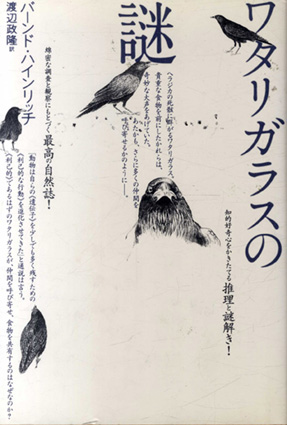 ワタリガラスの
謎
バーンド・ハインリッチ
渡辺政隆 訳
ヘラジカの死骸に群がるワタリガラス。
貴重な食物を前にしたかれらは、
奇妙な大声をあげていた。
あたかも、さらに多くの仲間を
呼び寄せるかのように──。
知的好奇心をかきたてる推理と謎解き!
綿密な調査と観察にもとづく最高の自然誌!
「動物は自らの〈遺伝子〉を少しでも多く残すための
〈利己的な行動〉を進化させてきた」と通説は言う。
〈利己的〉であるはずのワタリガラスが、仲間を呼び寄せ、食物を共有するのはなぜなのか?